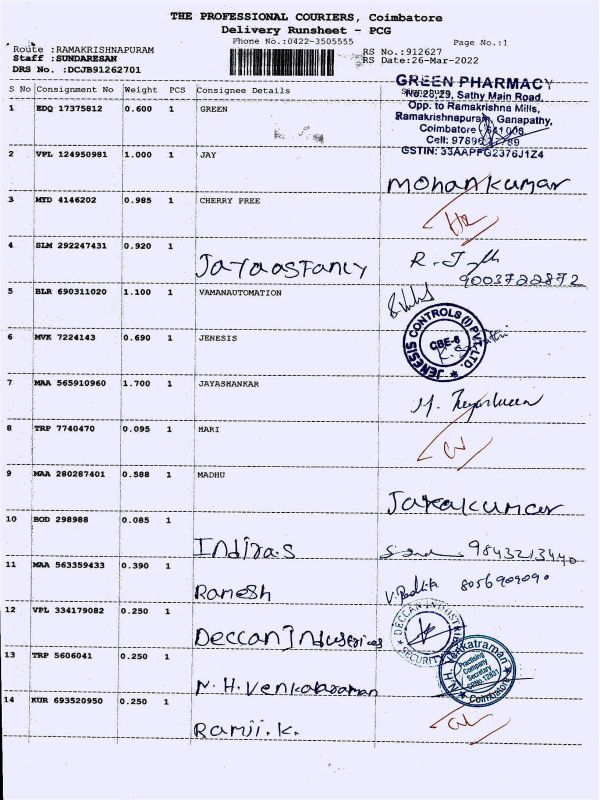 THE PROFESSIONAL COURIERS, Coimbatore
Delivery Runsheet - PCG
Phone No.:0422-3505555 Page No.:1
Route :RAMAKRISHNAPURAM RS No.:912627
Staff :SUNDARESAN RS Date:26-Mar-2022
DRS No. :DCJB91262701
S No Consignment No Weight PCS Consignee Details
GREEN PHARMACY
No.28,29, Sathy Main Road,
Opp. to Ramakrishna Mills,
Ramakrishnapuram, Ganapathy,
Coimbatore - 641006
Cell:
GSTIN: 33AAPFG2376J1Z4
1 EDQ 17375812 0.600 1 GREEN
2 VPL 124950981 1.000 1 JAY
Mohankumar
3 MYD 4146202 0.985 1 CHERRY PREE
4 SLM 292247431 0.920 1
Jayaas Fancy 9003722872
5 BLR 690311020 1.100 1 VAMANAUTOMATION
6 MVK 7224143 0.690 1 JENESIS
JENESIS CONTROLS (I) PVT. LTD.
CBE-6
7 MAA 565910960 1.700 1 JAYASHANKAR
8 TRP 7740470 0.095 1 HARI
9 MAA 280287401 0.588 1 MADHU
Jayakumar
10 BOD 298988 0.085 1
Indira.S 9843213440
11 MAA 563359433 0.390 1
Ramesh 8056909090
12 VPL 334179082 0.250 1
Deccan Industries
DECCAN INDUSTRIES
SECURITY
13 TRP 5606041 0.250 1
N.H. Venkataraman
N.H. Venkatraman
Practising
Company
Secretary
Coimbatore
14 KUR 693520950 0.250 1
Ramji.K.